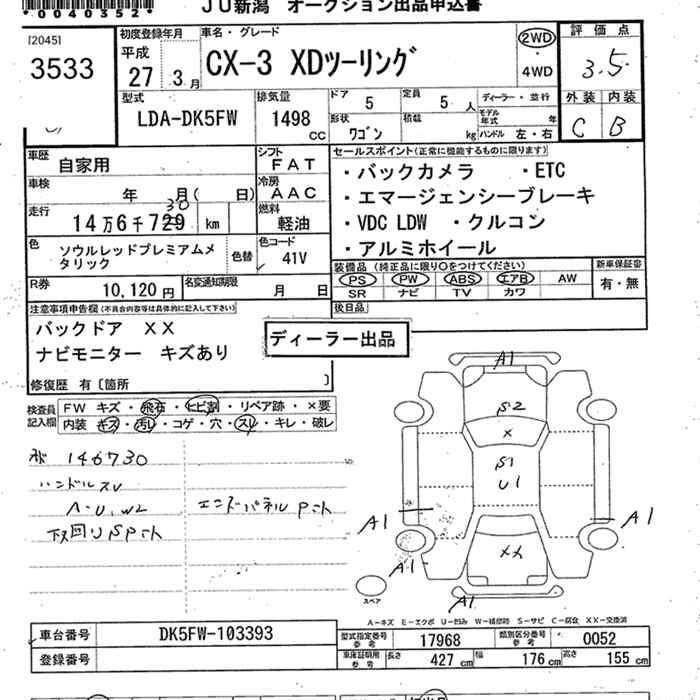 *0040352*
JU新潟 オークション出品申込書
[2045]
3533
初度登録年月
平成
27年 3月
車名・グレード
CX-3 XDツーリング
2WD
・
4WD
評価点
3.5
外装 内装
C B
型式
LDA-DK5FW
排気量
1498 CC
ドア 5
定員 5人
ディーラー・並行
モデル年式 年
形状 ワゴン
積載 kg
ハンドル 左・右
車歴 自家用
シフト FAT
車検 年 月( 日)
冷房 AAC
走行 14万6千729 km
30
燃料 軽油
色 ソウルレッドプレミアムメタリック
色替
色コード 41V
R券 10,120円
名変通知期限 月 日
セールスポイント(正常に機能するものに限ります)
・バックカメラ ・ETC
・エマージェンシーブレーキ
・VDC LDW ・クルコン
・アルミホイール
装備品(純正品に限り○をつけてください)
PS PW ABS エアB AW
SR ナビ TV カワ
新車保証書
有・無
後日品
注意事項申告欄(不具合内容等は具体的に記入して下さい)
バックドア XX
ナビモニター キズあり
修復歴 有〔箇所 〕
ディーラー出品
検査員記入欄
FW キズ・飛石・ヒビ割・リペア跡・×要
内装 キズ・汚レ・コゲ・穴・スレ・キレ・破レ
146730
ハンドルスレ
A-U.W2
下回りSPント
エンドパネルPント
A1
S2
X
S1
U1
A1
A1
A1
XX
A1
スペア
A-キズ E-エクボ U-凹み W-補修跡 S-サビ C-腐食 XX-交換済
車台番号 DK5FW-103393
登録番号
型式指定番号 参考 17968
類別区分番号 参考 0052
車庫証明用 参考 長さ 427cm 幅 176cm 高さ 155cm